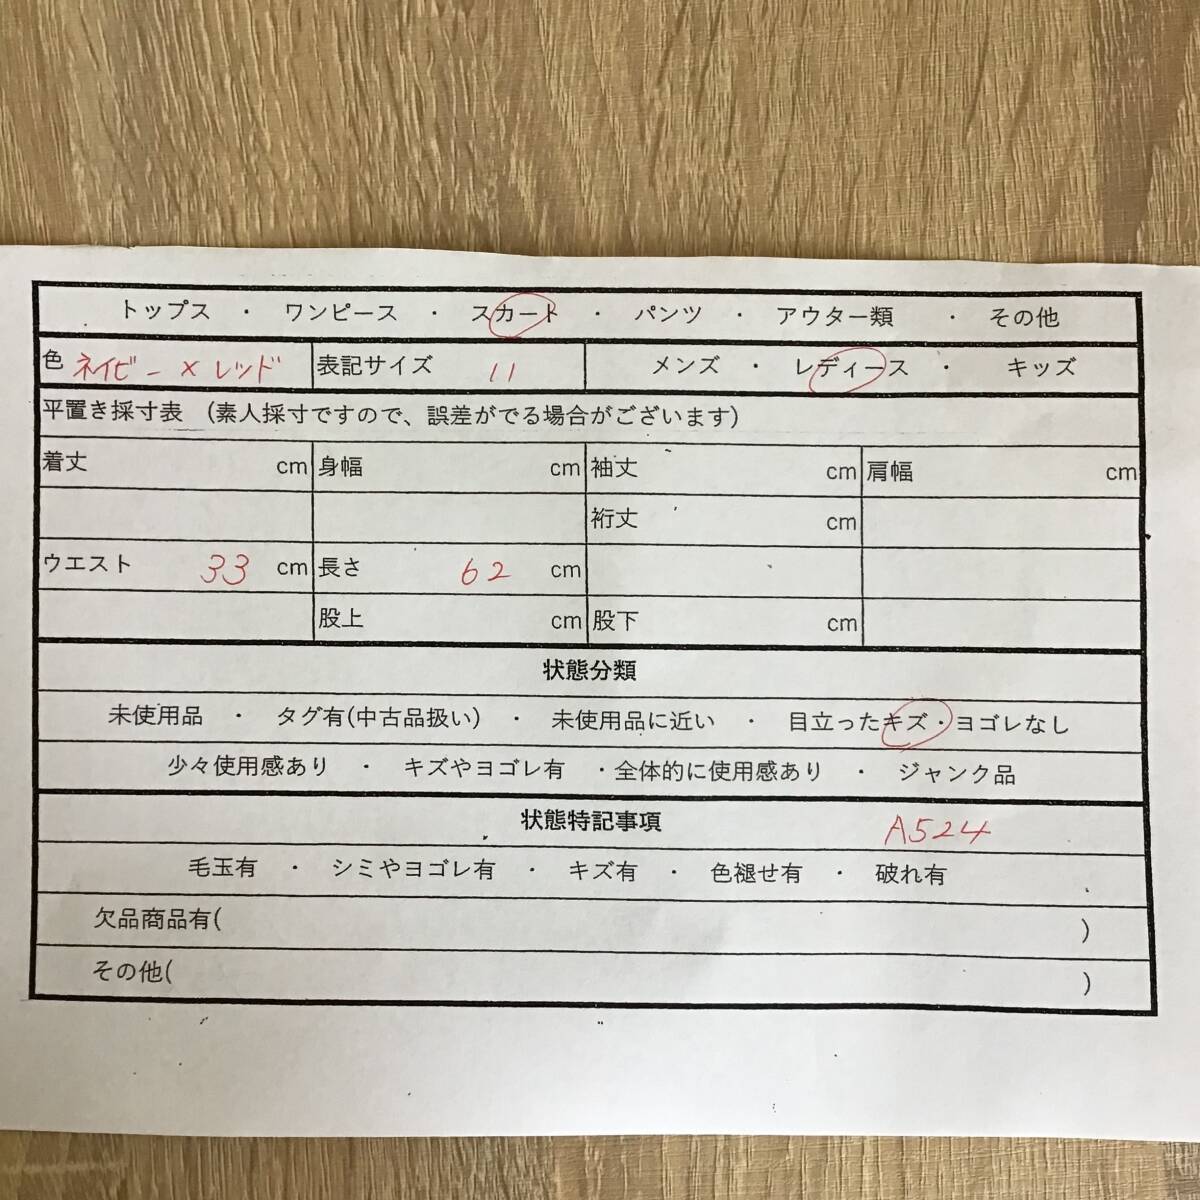 トップス ・ ワンピース ・ スカート ・ パンツ ・ アウター類 ・ その他
色 ネイビー×レッド 表記サイズ 11 メンズ ・ レディース ・ キッズ
平置き採寸表 (素人採寸ですので、誤差がでる場合がございます)
着丈 cm 身幅 cm 袖丈 cm 肩幅 cm
裄丈 cm
ウエスト 33 cm 長さ 62 cm
股上 cm 股下 cm
状態分類
未使用品 ・ タグ有(中古品扱い) ・ 未使用品に近い ・ 目立ったキズ・ヨゴレなし
少々使用感あり ・ キズやヨゴレ有 ・全体的に使用感あり ・ ジャンク品
状態特記事項 A524
毛玉有 ・ シミやヨゴレ有 ・ キズ有 ・ 色褪せ有 ・ 破れ有
欠品商品有( )
その他( )